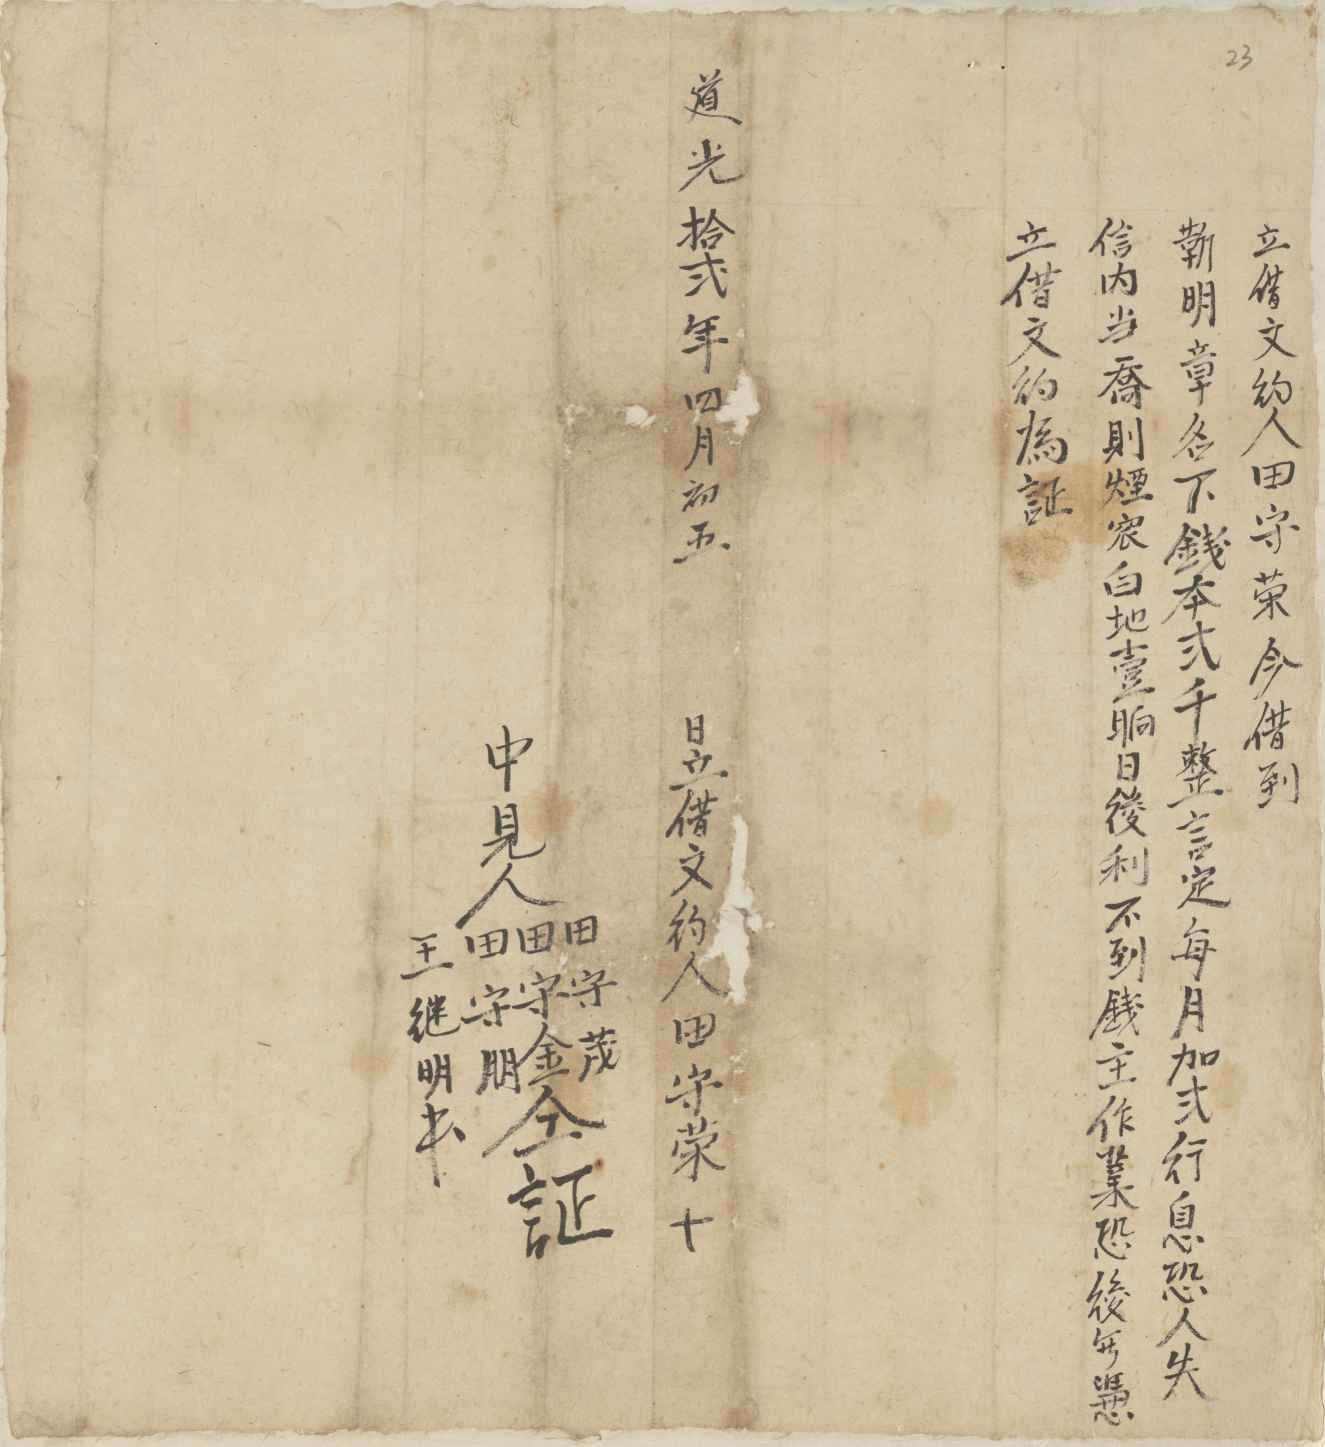 23
立借文約人田守荣今借到
靳明章名下錢本弍千整言定每月加弍行息恐人失
信内当喬則煙宲白地壹晌日後利不到錢主作業恐後无憑
立借文約為証
道光拾弍年四月初五日立借文約人田守荣十
中見人
田守茂
田守金
田守朋
仝証
王继明书